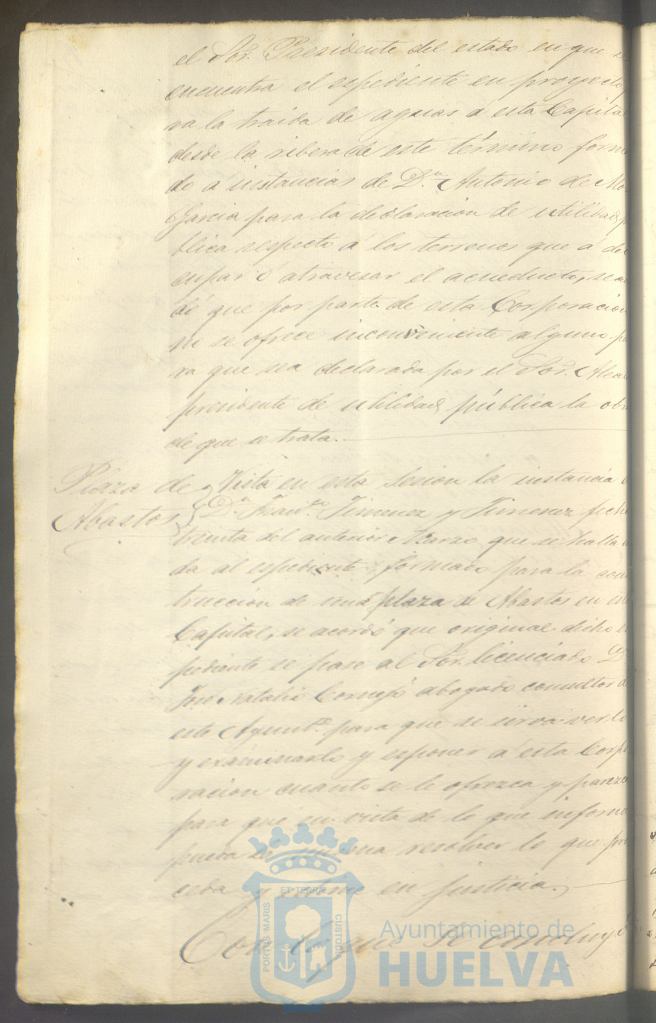 el Sor. Presidente del estado en que se
encuentra el espediente en proyecto
va la traida de aguas a esta Capital
desde la ribera de este término forma
do a instancias de Dn. Antonio de Mo
Garcia para la declaracion de utilidad pú
blica respecto a los terrenos que a de
cupar ó atravesar el acueducto, se
dó que por parte de esta Corporacion
no se ofrece inconveniente alguno pa
ra que sea declarada por el Sor. Alcal
presidente de utilidad pública la obra
de que se trata.
Plaza de Abastos
Vista en esta sesion la instancia
Dn. Franco. Jimenez y Jimenez fecha
treinta del anterior Marzo que se halla
da al espediente formado para la cons
truccion de una plaza de Abastos en
Capital, se acordó que original dicho es
pediente se pase al Sor. licenciado Dn
José Natalio Cornejo abogado consultor de
este Ayunto. para que se sirva verlo
y examinarlo y esponer a esta Corpo
racion cuanto se le ofrezca y parezca
para que en vista de lo que informe
pueda la misma resolver lo que pro
ceda y estime en justicia.
Con lo que se concluyó
PORTUS MARIS ET TERRE CUSTODIA
Ayuntamiento de
HUELVA